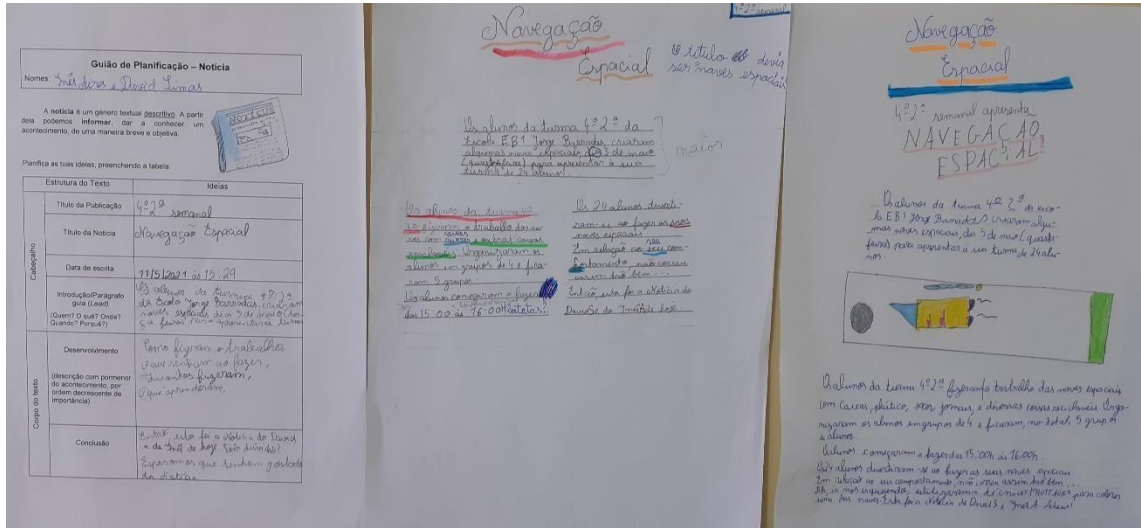 Guião de Planificação – Notícia
Nomes: Inês Aires e David Simas
A notícia é um género textual descritivo. A partir
dela podemos informar, dar a conhecer um
acontecimento, de uma maneira breve e objetiva.
NOTÍCIAS
Planifica as tuas ideias, preenchendo a tabela:
Estrutura do Texto
Ideias
Cabeçalho
Título da Publicação
4º2ª semanal
Título da Notícia
Navegação Espacial
Data de escrita
11/5/2021 às 15:29
Introdução/Parágrafo
guia (Lead)
(Quem? O quê? Onde?
Quando? Porquê?)
Os alunos da turma 4º2ª
da Escola Jorge Barradas, criaram
naves espaciais dia 5 de maio
feira) para apresentar à turma
Corpo do texto
Desenvolvimento
(descrição com pormenor
do acontecimento, por
ordem decrescente de
importância)
Como fizeram o trabalho
O que tinham ao fazer,
Quantos fizeram,
O que aprenderam.
Conclusão
Então, esta foi a Notícia do David
e da Inês de hoje
Esperamos que tenham gostado
da notícia
4º2ª semanal
Navegação
Espacial
O título devia
ser naves espaciais
Os alunos da turma 4º2ª da
Escola EB1 Jorge Barradas, criaram
algumas naves espaciais, dia 5 de maio
(quarta-feira) para apresentar à sua
turma de 24 alunos.
maior
Os alunos da turma
fizeram o trabalho das na-
ves com caixas e outras coisas
Organizaram os
alunos em grupos de 4 e fica-
ram 5 grupos
Os alunos começaram a fazer
das 15:00 às 16:00
Os 24 alunos diverti-
ram-se ao fazer as suas
naves espaciais.
Em relação ao seu com-
portamento, não correu
assim tão bem...
Então, esta foi a Notícia do
David e da Inês de hoje.
Navegação
Espacial
4º2ª semanal apresenta
NAVEGAÇÃO
ESPACIAL
Os alunos da turma 4º 2ª da esco-
la EB1 Jorge Barradas criaram algu-
mas naves espaciais, dia 5 de maio (quarta-
feira) para apresentar à sua turma de 24 alu-
nos.
Os alunos da turma 4º2ª fizeram o trabalho das naves espaciais
com caixas, plástico, jornais, e diversas coisas recicláveis. Orga-
nizaram os alunos em grupos de 4 e ficaram, no total, 5 grupos
de alunos.
Os alunos começaram a fazer das 15:00h às 16:00h.
Os 24 alunos divertiram-se ao fazer as suas naves espaciais
Em relação ao seu comportamento, não correu assim tão bem...
Ah, ia-nos esquecendo, utilizaram a técnica para colorir
uma das naves. Esta foi a Notícia de David S e Inês A.